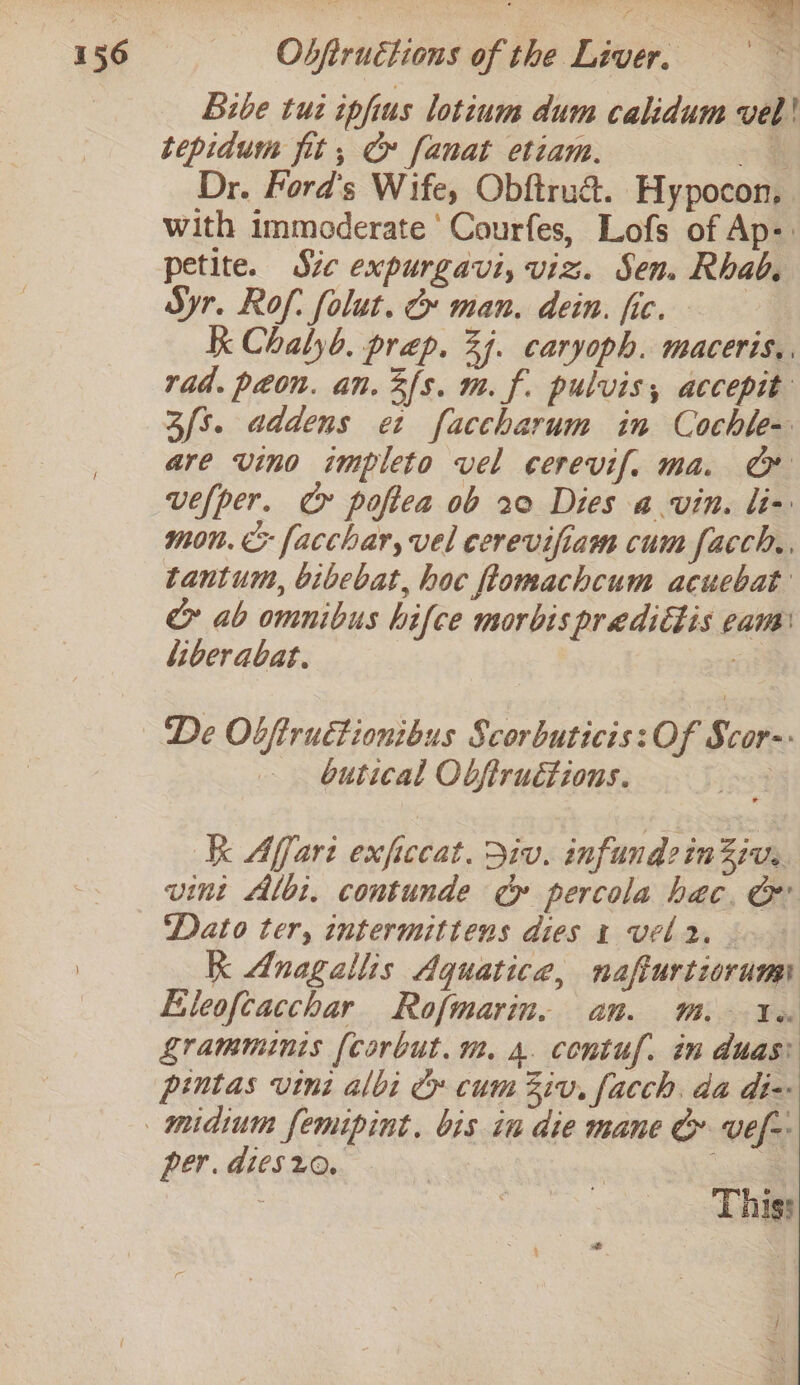 156 Obſtructions of the Liver.
Bibe tui ipſius lotium dum calidum vel
tepidum ſit; & ſanat etiam.
Dr. Ford's Wife, Obſtruct. Hypocon.
with immoderate Courſes, Loſs of Ap-
petite. Sic expurgavi, viz. Sen. Rhab.
Syr. Roſ. ſolut. & man. dein. ſic.
℞ Chalyb. præp. ℥j. caryoph. maceris.
rad. pæon. an. ℥ſs. m. f. pulvis, accepit
ʒſs. addens ei ſaccharum in Cochle-
are vino impleto vel cereviſ. ma. &
veſper. & poſtea ob 20 Dies a vin. li-
mon. & ſacchar, vel cereviſiam cum ſacch.
tantum, bibebat, hoc ſtomachcum acuebat
& ab omnibus hiſce morbis prædictis eam
liberabat.
De Obſtructionibus Scorbuticis: Of Scor-
butical Obſtructions.
℞ Aſſari exſiccat. ℈iv. infunde in ℥iv.
vini Albi. contunde & percola hæc. &
Dato ter, intermittens dies 1 vel 2.
℞ Anagallis Aquaticæ, naſturtiorum
Eleoſcacchar Roſmarin. an. m. 1.
gramminis ſcorbut. m. 4. contuſ. in duas
pintas vini albi & cum ℥iv. ſacch. da di-
midium ſemipint. bis in die mane & veſ-
per. dies 20.
This